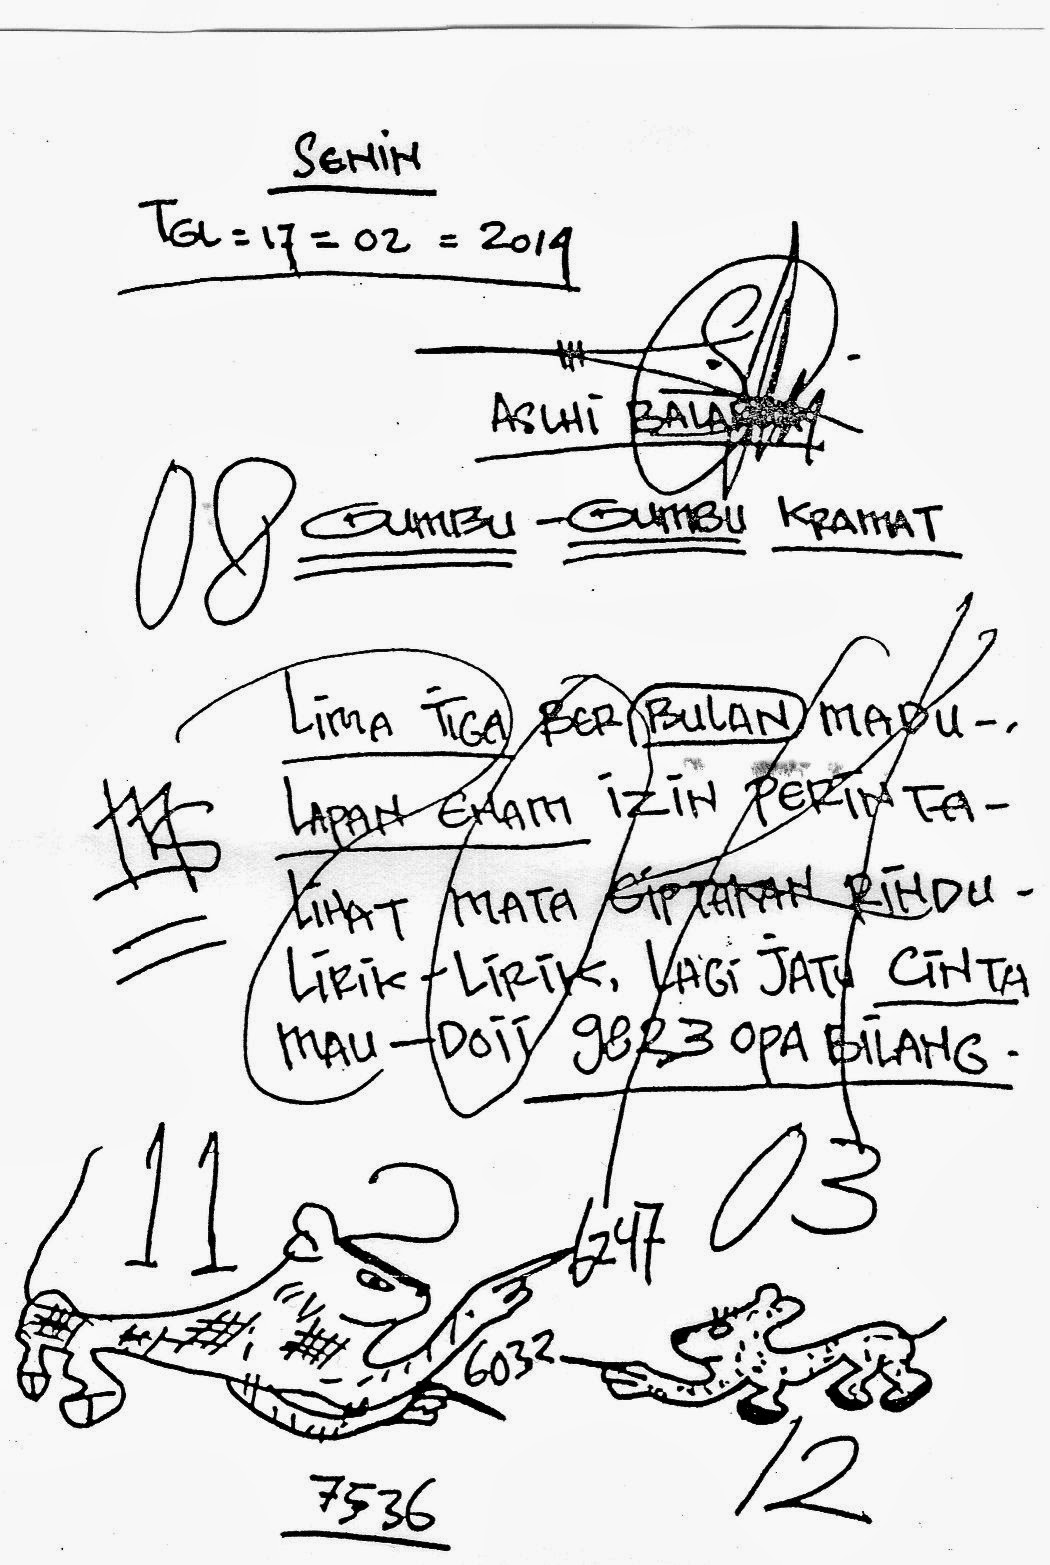 SENiN
TGL = 17 = 02 = 2014
ASLHi
08 GUMBU - GUMBU KRAMAT
LiMA TiGA BER BULAN MADU -.
LAPAN ENAM iZiN PERiNTA -
LiHAT MATA CiPTAKAN RiNDU -
LiRiK - LiRiK, LAGi JATU CiNTA
MAU - DOii OPA BiLANG.
11
03
6247
6032
12
7536